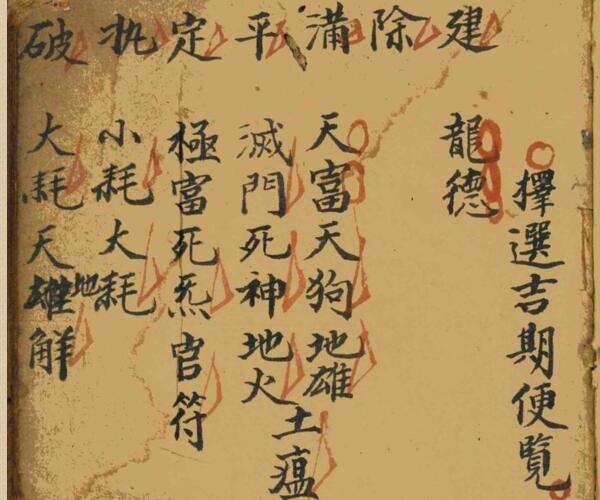 擇選吉期便覽
建 龍德
除
滿 天富天狗地雄土瘟
平 滅門死神地火
定 極富死炁官符
执 小耗大耗
破 大耗天雄地解